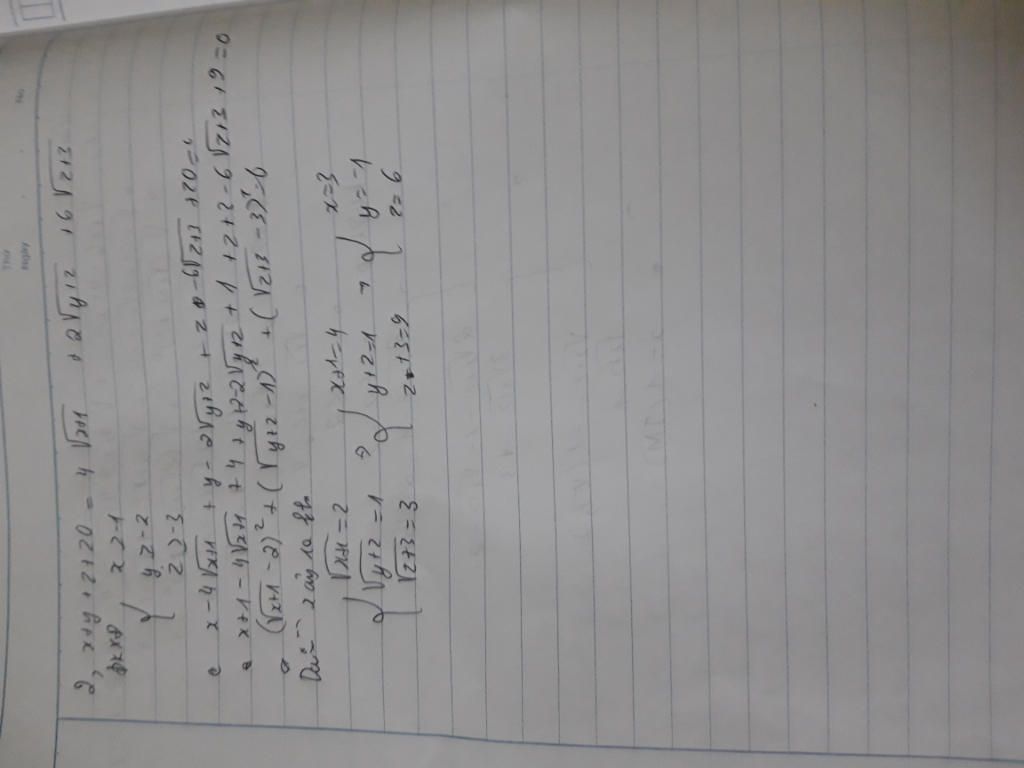 Thứ
Ngày
No
2, x+y+z+20 = 4√x+1 + 2√y+2 + 6√z+3
ĐKXĐ { x ≥ -1
y ≥ -2
z ≥ -3
x - 4√x+1 + y - 2√y+2 + z - 6√z+3 + 20 =
x+1 - 4√x+1 + 4 + y+2 - 2√y+2 + 1 + z+2 - 6√z+3 + 9 = 0
(√x+1 - 2)² + (√y+2 - 1)² + (√z+3 - 3)² =
Dấu "=" xảy ra
{ √x+1 = 2
√y+2 = 1
√z+3 = 3
⇒ { x+1 = 4
y+2 = 1
z+3 = 9
{ x = 3
y = -1
z = 6